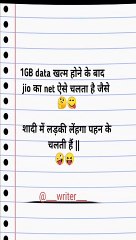 1GB data खत्म होने के बाद
jio का net ऐसे चलता है जैसे
🤔😋
शादी में लड़की लेंहगा पहन के
चलती हैं ||
🤪😝
@__writer___